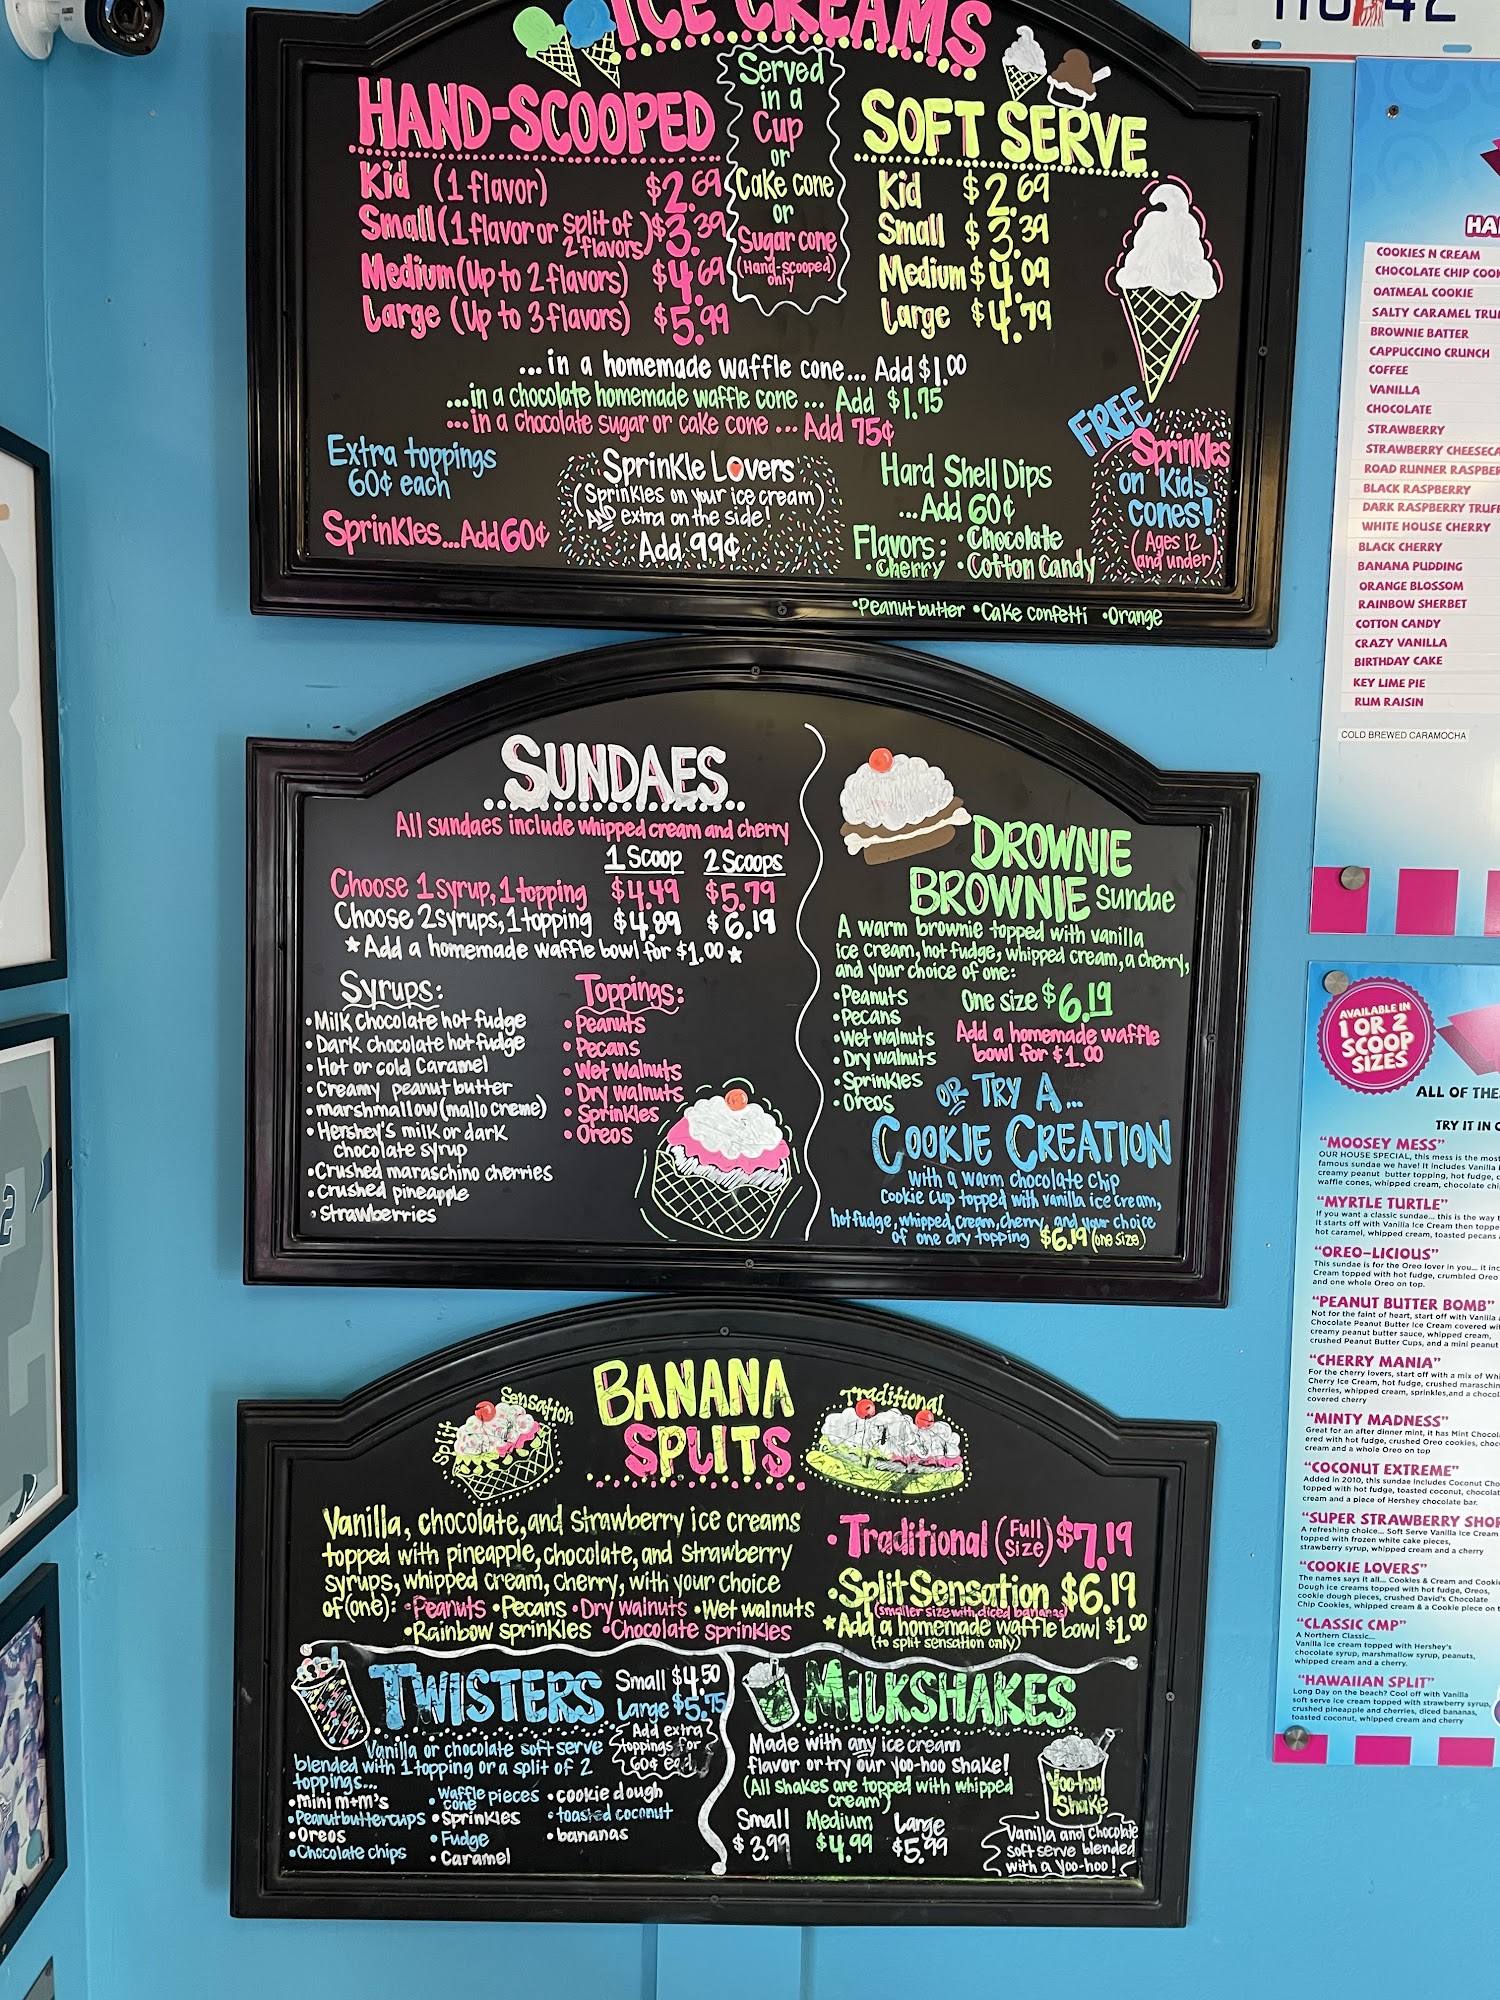 ICE CREAMS
HAND-SCOOPED
Kid (1 flavor) $2.69
Small (1 flavor or split of 2 flavors) $3.39
Medium (Up to 2 flavors) $4.69
Large (Up to 3 flavors) $5.99
Served
in a
Cup
or
Cake cone
or
Sugar cone
(Hand-scooped)
only
SOFT SERVE
Kid $2.69
Small $3.39
Medium $4.09
Large $4.79
...in a homemade waffle cone... Add $1.00
...in a chocolate homemade waffle cone... Add $1.75
...in a chocolate sugar or cake cone... Add 75¢
Extra toppings
60¢ each
Sprinkles...Add 60¢
Sprinkle Lovers
(Sprinkles on your ice cream)
AND extra on the side!
Add 99¢
Hard Shell Dips
...Add 60¢
Flavors: •Chocolate
•Cherry •Cotton Candy
•Peanut butter •Cake confetti •Orange
FREE
Sprinkles
on Kids
cones!
(Ages 12
and under)
SUNDAES
All sundaes include whipped cream and cherry
1 Scoop 2 Scoops
Choose 1 syrup, 1 topping $4.49 $5.79
Choose 2 syrups, 1 topping $4.89 $6.19
★Add a homemade waffle bowl for $1.00★
Syrups:
•Milk chocolate hot fudge
•Dark chocolate hot fudge
•Hot or cold Caramel
•Creamy peanut butter
•marshmallow (mallo creme)
•Hershey's milk or dark
chocolate syrup
•Crushed maraschino cherries
•crushed pineapple
•strawberries
Toppings:
•Peanuts
•Pecans
•Wet walnuts
•Dry walnuts
•Sprinkles
•Oreos
DROWNIE
BROWNIE Sundae
A warm brownie topped with vanilla
ice cream, hot fudge, whipped cream, a cherry,
and your choice of one:
•Peanuts
•Pecans
•Wet walnuts
•Dry walnuts
•Sprinkles
•Oreos
One size $6.19
Add a homemade waffle
bowl for $1.00
OR TRY A...
COOKIE CREATION
with a warm chocolate chip
cookie cup topped with vanilla ice cream,
hot fudge, whipped cream, cherry, and your choice
of one dry topping $6.19 (one size)
BANANA
SPLITS
Split Sensation
Traditional
Vanilla, chocolate, and strawberry ice creams
topped with pineapple, chocolate, and strawberry
syrups, whipped cream, cherry, with your choice
of (one): •Peanuts •Pecans •Dry walnuts •Wet walnuts
•Rainbow sprinkles •Chocolate sprinkles
•Traditional (Full Size) $7.19
•Split Sensation $6.19
(smaller size with diced bananas)
★Add a homemade waffle bowl $1.00
(to split sensation only)
TWISTERS
Small $4.50
Large $5.75
Add extra
toppings for
60¢ each
Vanilla or chocolate soft serve
blended with 1 topping or a split of 2
toppings...
•mini m+m's
•Peanut butter cups
•Oreos
•Chocolate chips
•waffle cone pieces
•Sprinkles
•Fudge
•Caramel
•cookie dough
•toasted coconut
•bananas
MILKSHAKES
Made with any ice cream
flavor or try our yoo-hoo shake!
(All shakes are topped with whipped
cream)
Small Medium Large
$3.99 $4.99 $5.99
Yoo-hoo
Shake
Vanilla and chocolate
soft serve blended
with a Yoo-hoo!
HA
COOKIES N CREAM
CHOCOLATE CHIP COOK
OATMEAL COOKIE
SALTY CARAMEL TRU
BROWNIE BATTER
CAPPUCCINO CRUNCH
COFFEE
VANILLA
CHOCOLATE
STRAWBERRY
STRAWBERRY CHEESECA
ROAD RUNNER RASPBER
BLACK RASPBERRY
DARK RASPBERRY TRUFF
WHITE HOUSE CHERRY
BLACK CHERRY
BANANA PUDDING
ORANGE BLOSSOM
RAINBOW SHERBET
COTTON CANDY
CRAZY VANILLA
BIRTHDAY CAKE
KEY LIME PIE
RUM RAISIN
COLD BREWED CARAMOCHA
AVAILABLE IN
1 OR 2
SCOOP
SIZES
ALL OF THE
TRY IT IN
"MOOSEY MESS"
OUR HOUSE SPECIAL, this mess is the most
famous sundae we have! It includes Vanilla
creamy peanut butter topping, hot fudge,
waffle cones, whipped cream, chocolate chi
"MYRTLE TURTLE"
If you want a classic sundae... this is the way
It starts off with Vanilla Ice Cream then toppe
hot caramel, whipped cream, toasted pecans
"OREO-LICIOUS"
This sundae is for the Oreo lover in you... it inc
Cream topped with hot fudge, crumbled Oreo
and one whole Oreo on top.
"PEANUT BUTTER BOMB"
Not for the faint of heart, start off with Vanilla
Chocolate Peanut Butter Ice Cream covered wi
creamy peanut butter sauce, whipped cream,
crushed Peanut Butter Cups, and a mini peanut
"CHERRY MANIA"
For the cherry lovers, start off with a mix of Wh
Cherry Ice Cream, hot fudge, crushed maraschin
cherries, whipped cream, sprinkles,and a chocol
covered cherry
"MINTY MADNESS"
Great for an after dinner mint, it has Mint Chocol
ered with hot fudge, crushed Oreo cookies, choc
cream and a whole Oreo on top
"COCONUT EXTREME"
Added in 2010, this sundae includes Coconut Cho
topped with hot fudge, toasted coconut, chocolat
cream and a piece of Hershey chocolate bar.
"SUPER STRAWBERRY SHOR
A refreshing choice... Soft Serve Vanilla Ice Cream
topped with frozen white cake pieces,
strawberry syrup, whipped cream and a cherry
"COOKIE LOVERS"
The names says it all... Cookies & Cream and Cooki
Dough ice creams topped with hot fudge, Oreos,
cookie dough pieces, crushed David's Chocolate
Chip Cookies, whipped cream & a Cookie piece on t
"CLASSIC CMP"
A Northern Classic...
Vanilla ice cream topped with Hershey's
chocolate syrup, marshmallow syrup, peanuts,
whipped cream and a cherry.
"HAWAIIAN SPLIT"
Long Day on the beach? Cool off with Vanilla
soft serve ice cream topped with strawberry syrup,
crushed pineapple and cherries, diced bananas,
toasted coconut, whipped cream and cherry